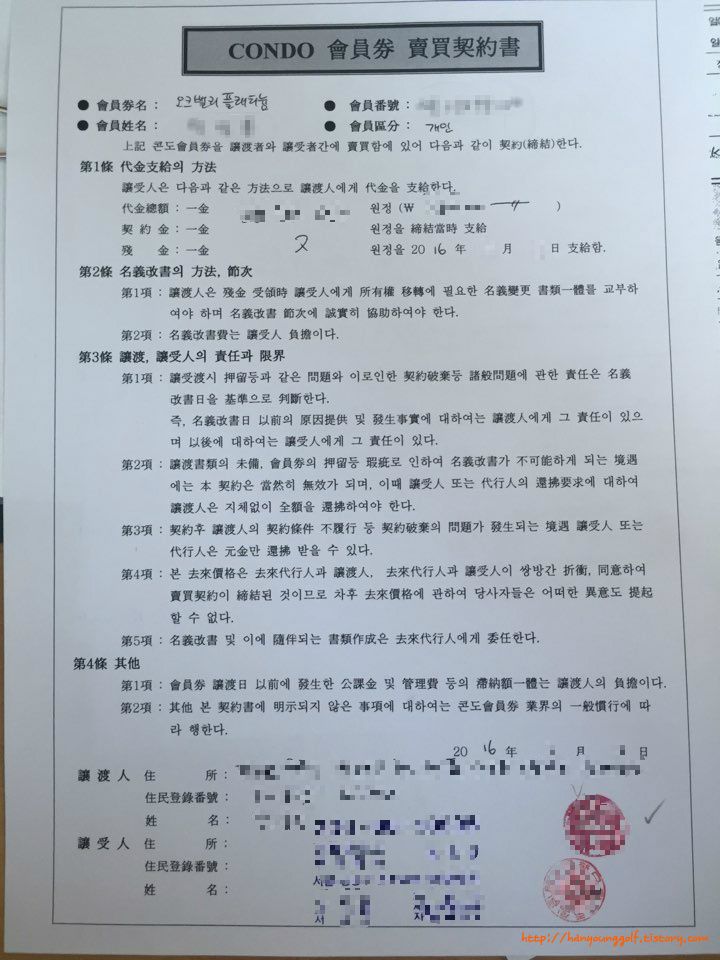 CONDO 會員券 賣買契約書
● 會員券名 : 오크밸리 플래티늄 ● 會員番號 :
● 會員姓名 : ● 會員區分 : 개인
上記 콘도會員券을 讓渡者와 讓受者간에 賣買함에 있어 다음과 같이 契約(締結)한다.
第1條 代金支給의 方法
讓受人은 다음과 같은 方法으로 讓渡人에게 代金을 支給한다.
代金總額 : 一金 원정 (₩ )
契 約 金 : 一金 원정을 締結當時 支給
殘 金 : 一金 원정을 2016 年 月 日 支給함.
第2條 名義改書의 方法, 節次
第1項 : 讓渡人은 殘金 受領時 讓受人에게 所有權 移轉에 必要한 名義變更 書類一體를 교부하
여야 하며 名義改書 節次에 誠實히 協助하여야 한다.
第2項 : 名義改書費는 讓受人 負擔이다.
第3條 讓渡, 讓受人의 責任과 限界
第1項 : 讓受渡시 押留등과 같은 問題와 이로인한 契約破棄등 諸般問題에 관한 責任은 名義
改書日을 基準으로 判斷한다.
즉, 名義改書日 以前의 原因提供 및 發生事實에 대하여는 讓渡人에게 그 責任이 있으
며 以後에 대하여는 讓受人에게 그 責任이 있다.
第2項 : 讓渡書類의 未備, 會員券의 押留등 瑕疵로 인하여 名義改書가 不可能하게 되는 境遇
에는 本 契約은 當然히 無效가 되며, 이때 讓受人 또는 代行人의 還拂要求에 대하여
讓渡人은 지체없이 全額을 還拂하여야 한다.
第3項 : 契約後 讓渡人의 契約條件 不履行 등 契約破棄의 問題가 發生되는 境遇 讓受人 또는
代行人은 元金만 還拂 받을 수 있다.
第4項 : 본 去來價格은 去來代行人과 讓渡人, 去來代行人과 讓受人이 쌍방간 折衝, 同意하여
賣買契約이 締結된 것이므로 차후 去來價格에 관하여 당사자들은 어떠한 異意도 提起
할 수 없다.
第5項 : 名義改書 및 이에 隨伴되는 書類作成은 去來代行人에게 委任한다.
第4條 其他
第1項 : 會員券 讓渡日 以前에 發生한 公課金 및 管理費 등의 滯納額一體는 讓渡人의 負擔이다.
第2項 : 其他 본 契約書에 明示되지 않은 事項에 대하여는 콘도會員券 業界의 一般慣行에 따
라 행한다.
2016 年 月 日
讓 渡 人 住 所 :
住民登錄番號 :
姓 名 :
讓 受 人 住 所 :
住民登錄番號 :
姓 名 :
http://hanyounggolf.tistory.com